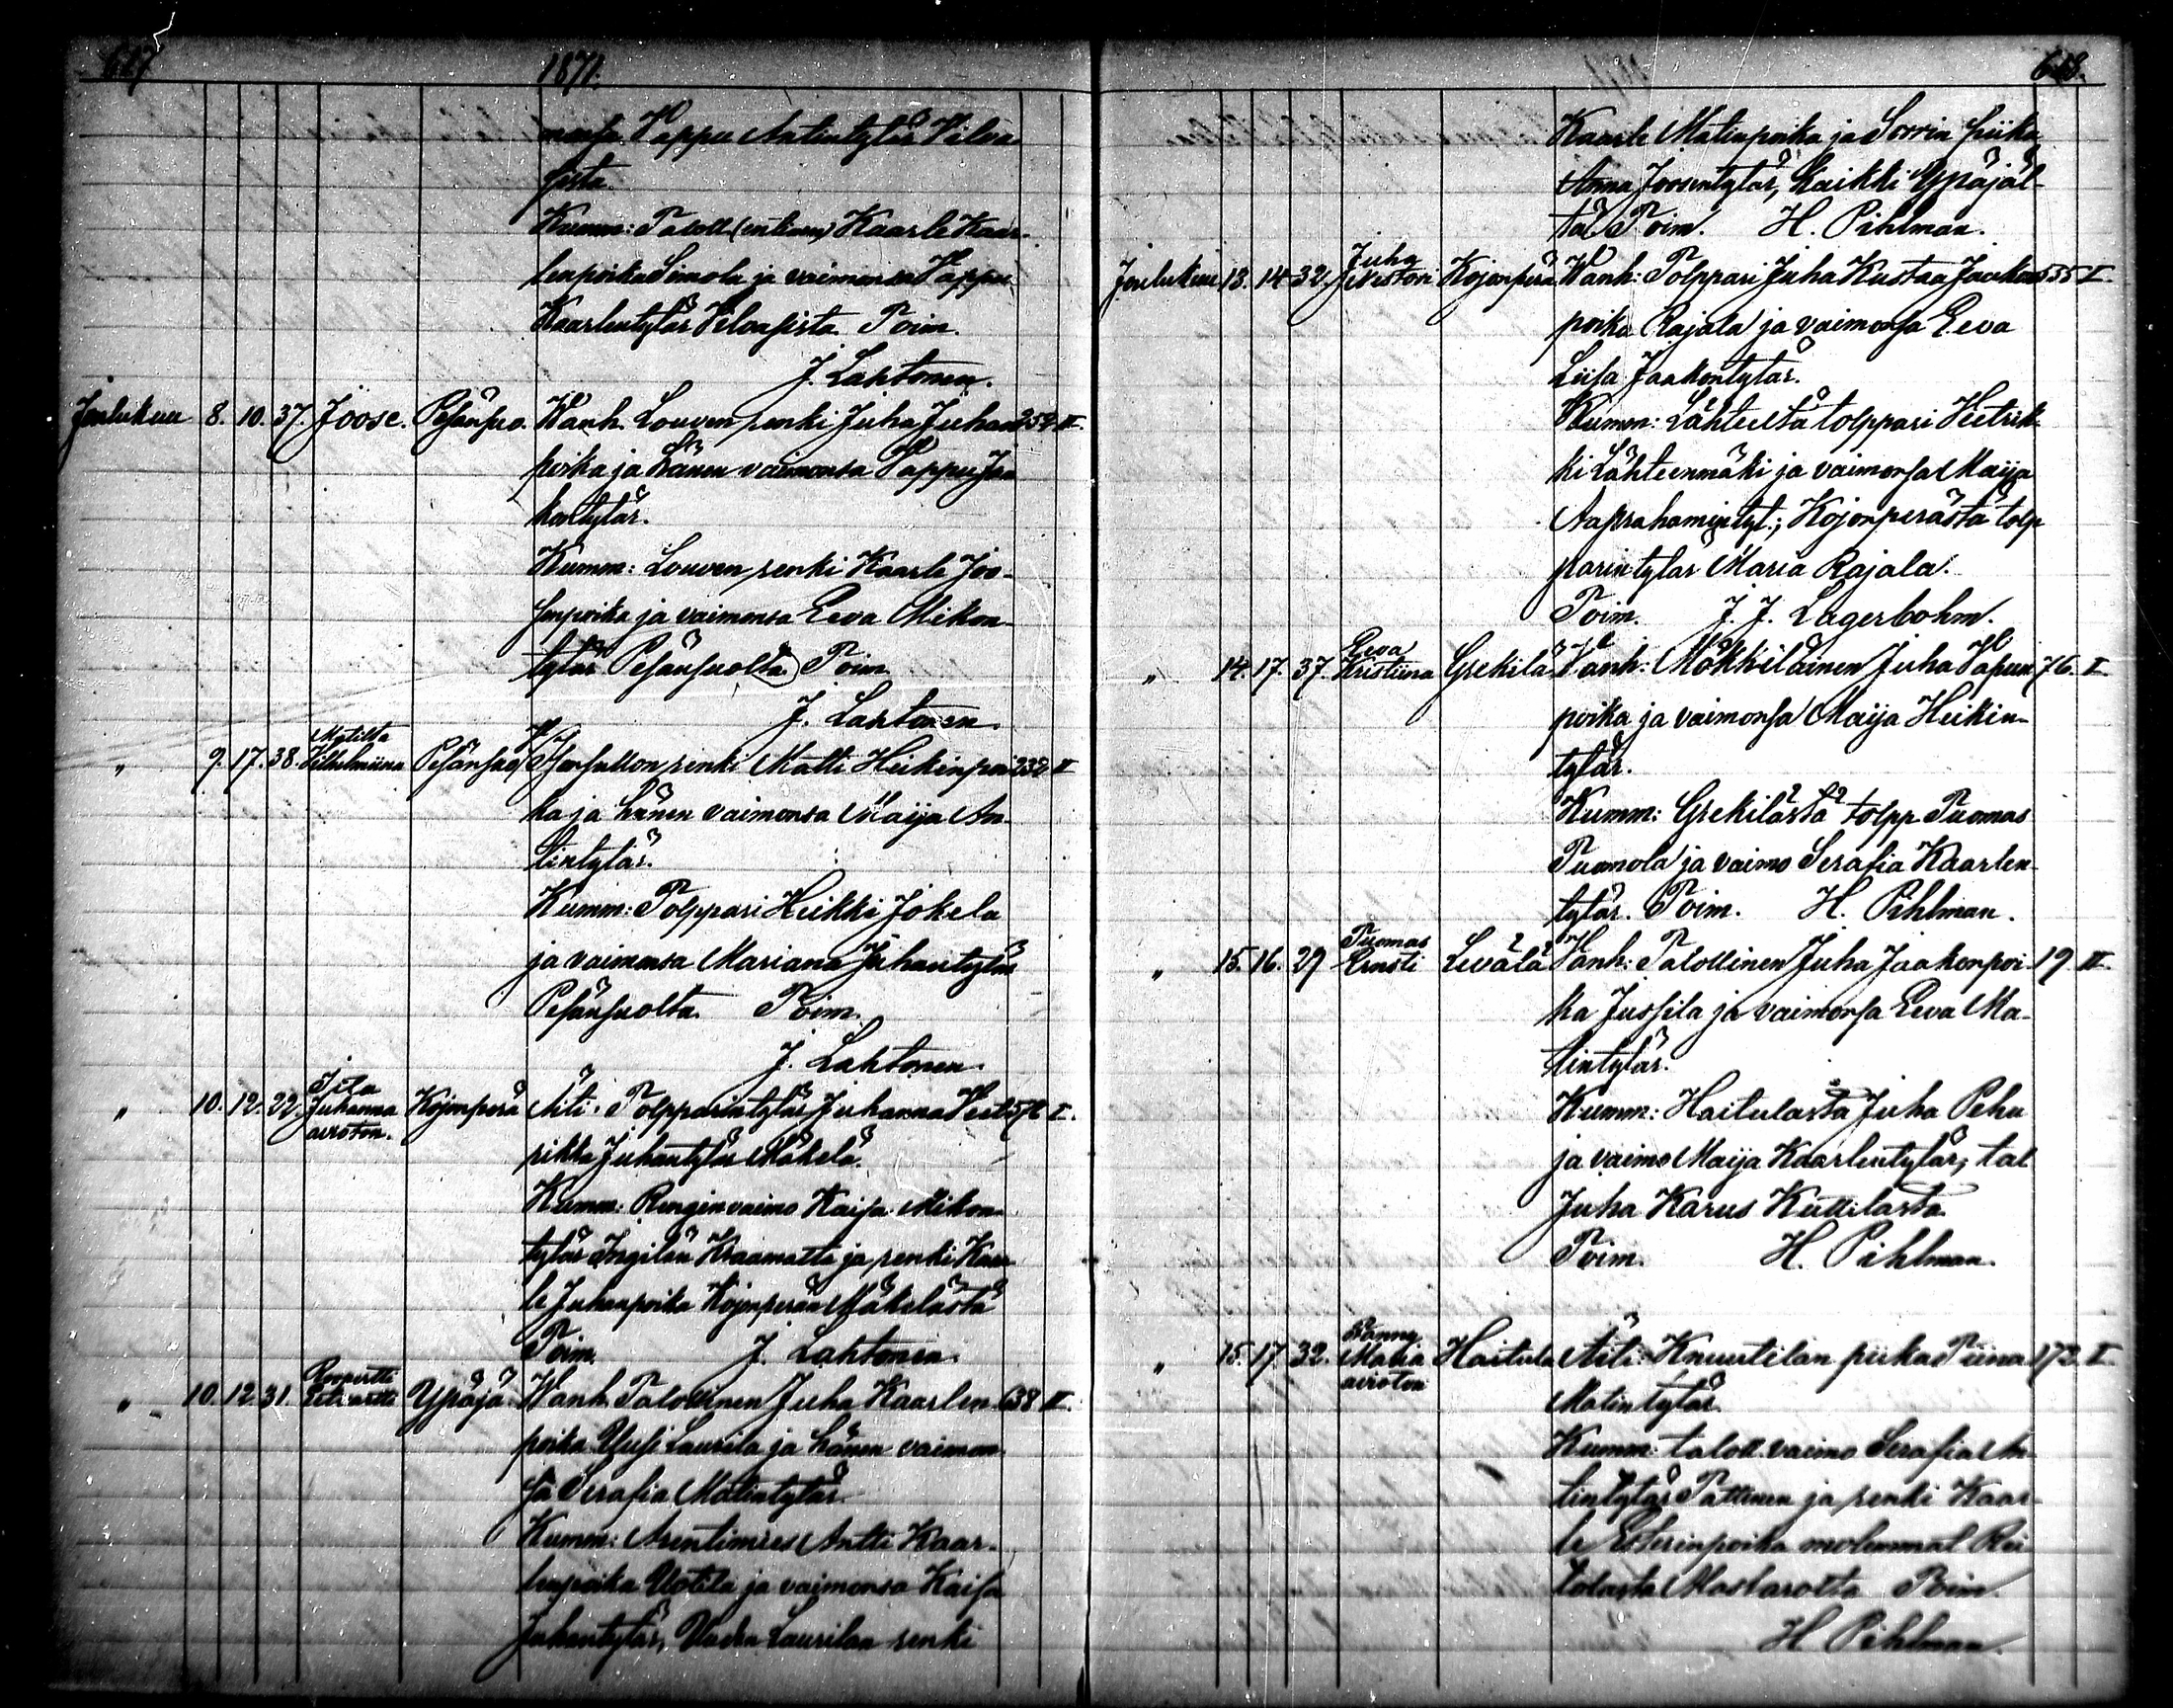 617
1871.
monsa Vappu Antintytär Vilva-
sista.
Kumm: Taloll (entinen) Kaarle Kaar-
lenpoika Simola ja vaimonsa Vappu
Kaarlentytär Vilvasista. Toim.
J. Lahtonen.
Joulukuu 8. 10. 37. Joose. Pesänsuo. Wanh. Louven renki Juha Juhan 252 II.
poika ja hänen vaimonsa Vappu Jaa
kontytär.
Kumm: Louven renki Kaarle Joo-
senpoika ja vaimonsa Eeva Mikon-
tytär Pesänsuolta. Toim
J. Lahtonen.
Matilta
„ 9. 17. 38. Vilhelmiina Pesänsuo renki Matti Heikinpoi 232 II
ka ja hänen vaimonsa Maija An-
tintytär.
Kumm: Tolppari Heikki Jokela
ja vaimonsa Mariana Juhantytär
Pesänsuolta. Toim.
J. Lahtonen.
Iita
„ 10. 12. 22. Juhanna Kojonperä Äiti: Tolpparintytär Juhanna Heet I.
avioton.
rikka Juhantytär Mäkelä.
Kumm: Renginvaimo Kaisa Mikon-
tytär Ingilän Kraamatti ja renki Kaar
le Juhanpoika Kojonperän Mäkelästä
Toim. J. Lahtonen.
Roopertti
„ 10. 12. 31. Ypäjä. Wanh. Talollinen Juha Kaarlen- 638 II.
poika Yusi Laurila ja hänen vaimon-
sa Serafia Matintytär.
Kumm: Arentimies Antti Kaar-
lenpoika Uotila ja vaimonsa Kaisa
Juhantytär, Vanha Laurilan renki
618.
Kaarle Matinpoika ja Sorrin piika
Anna Joosentytär, kaikki Ypäjäl-
tä. Toim. H. Pihlman.
Juha
Joulukuu 13. 14. 32. Nestori Kojonperä Wanh: Tolppari Juha Kustaa Jaakon 535 I.
poika Rajala ja vaimonsa Eeva
Liisa Jaakontytär.
Kumm: Lähteeltä tolppari Heetrik-
ki Lähteenmäki ja vaimonsa Maija
Aaprahamintyt.; Kojonperästä tolp
parintytär Maria Rajala.
Toim. J. J. Lagerbohm.
Eeva
„ 14. 17. 37. Kristiina Grekilä Vanh: Mökkiläinen Juha Vapun 76. I.
poika ja vaimonsa Maija Heikin-
tytär.
Kumm: Grekilästä tolpp Tuomas
Tuomola ja vaimo Serafia Kaarlen-
tytär. Toim. H. Pihlman.
Tuomas
„ 15. 16. 29 Ernsti Levälä Vanh: Talollinen Juha Jaakonpoi- 19. II.
ka Jussila ja vaimonsa Eeva Ma-
tintytär.
Kumm: Haitulasta Juha Pehu
ja vaimo Maija Kaarlentytär, tal
Juha Karus Kuttilasta
Toim. H. Pihlman.
Fanny
„ 15. 17. 32. Maria Haitula Äiti: Knuutilan piika Tiina 172. I.
avioton
Matintytär.
Kumm: taloll. vaimo Serafia An-
tintytär Pattinen ja renki Kaar-
le Esterinpoika molemmat Rai
tolasta Maskarolta Toim.
H Pihlman